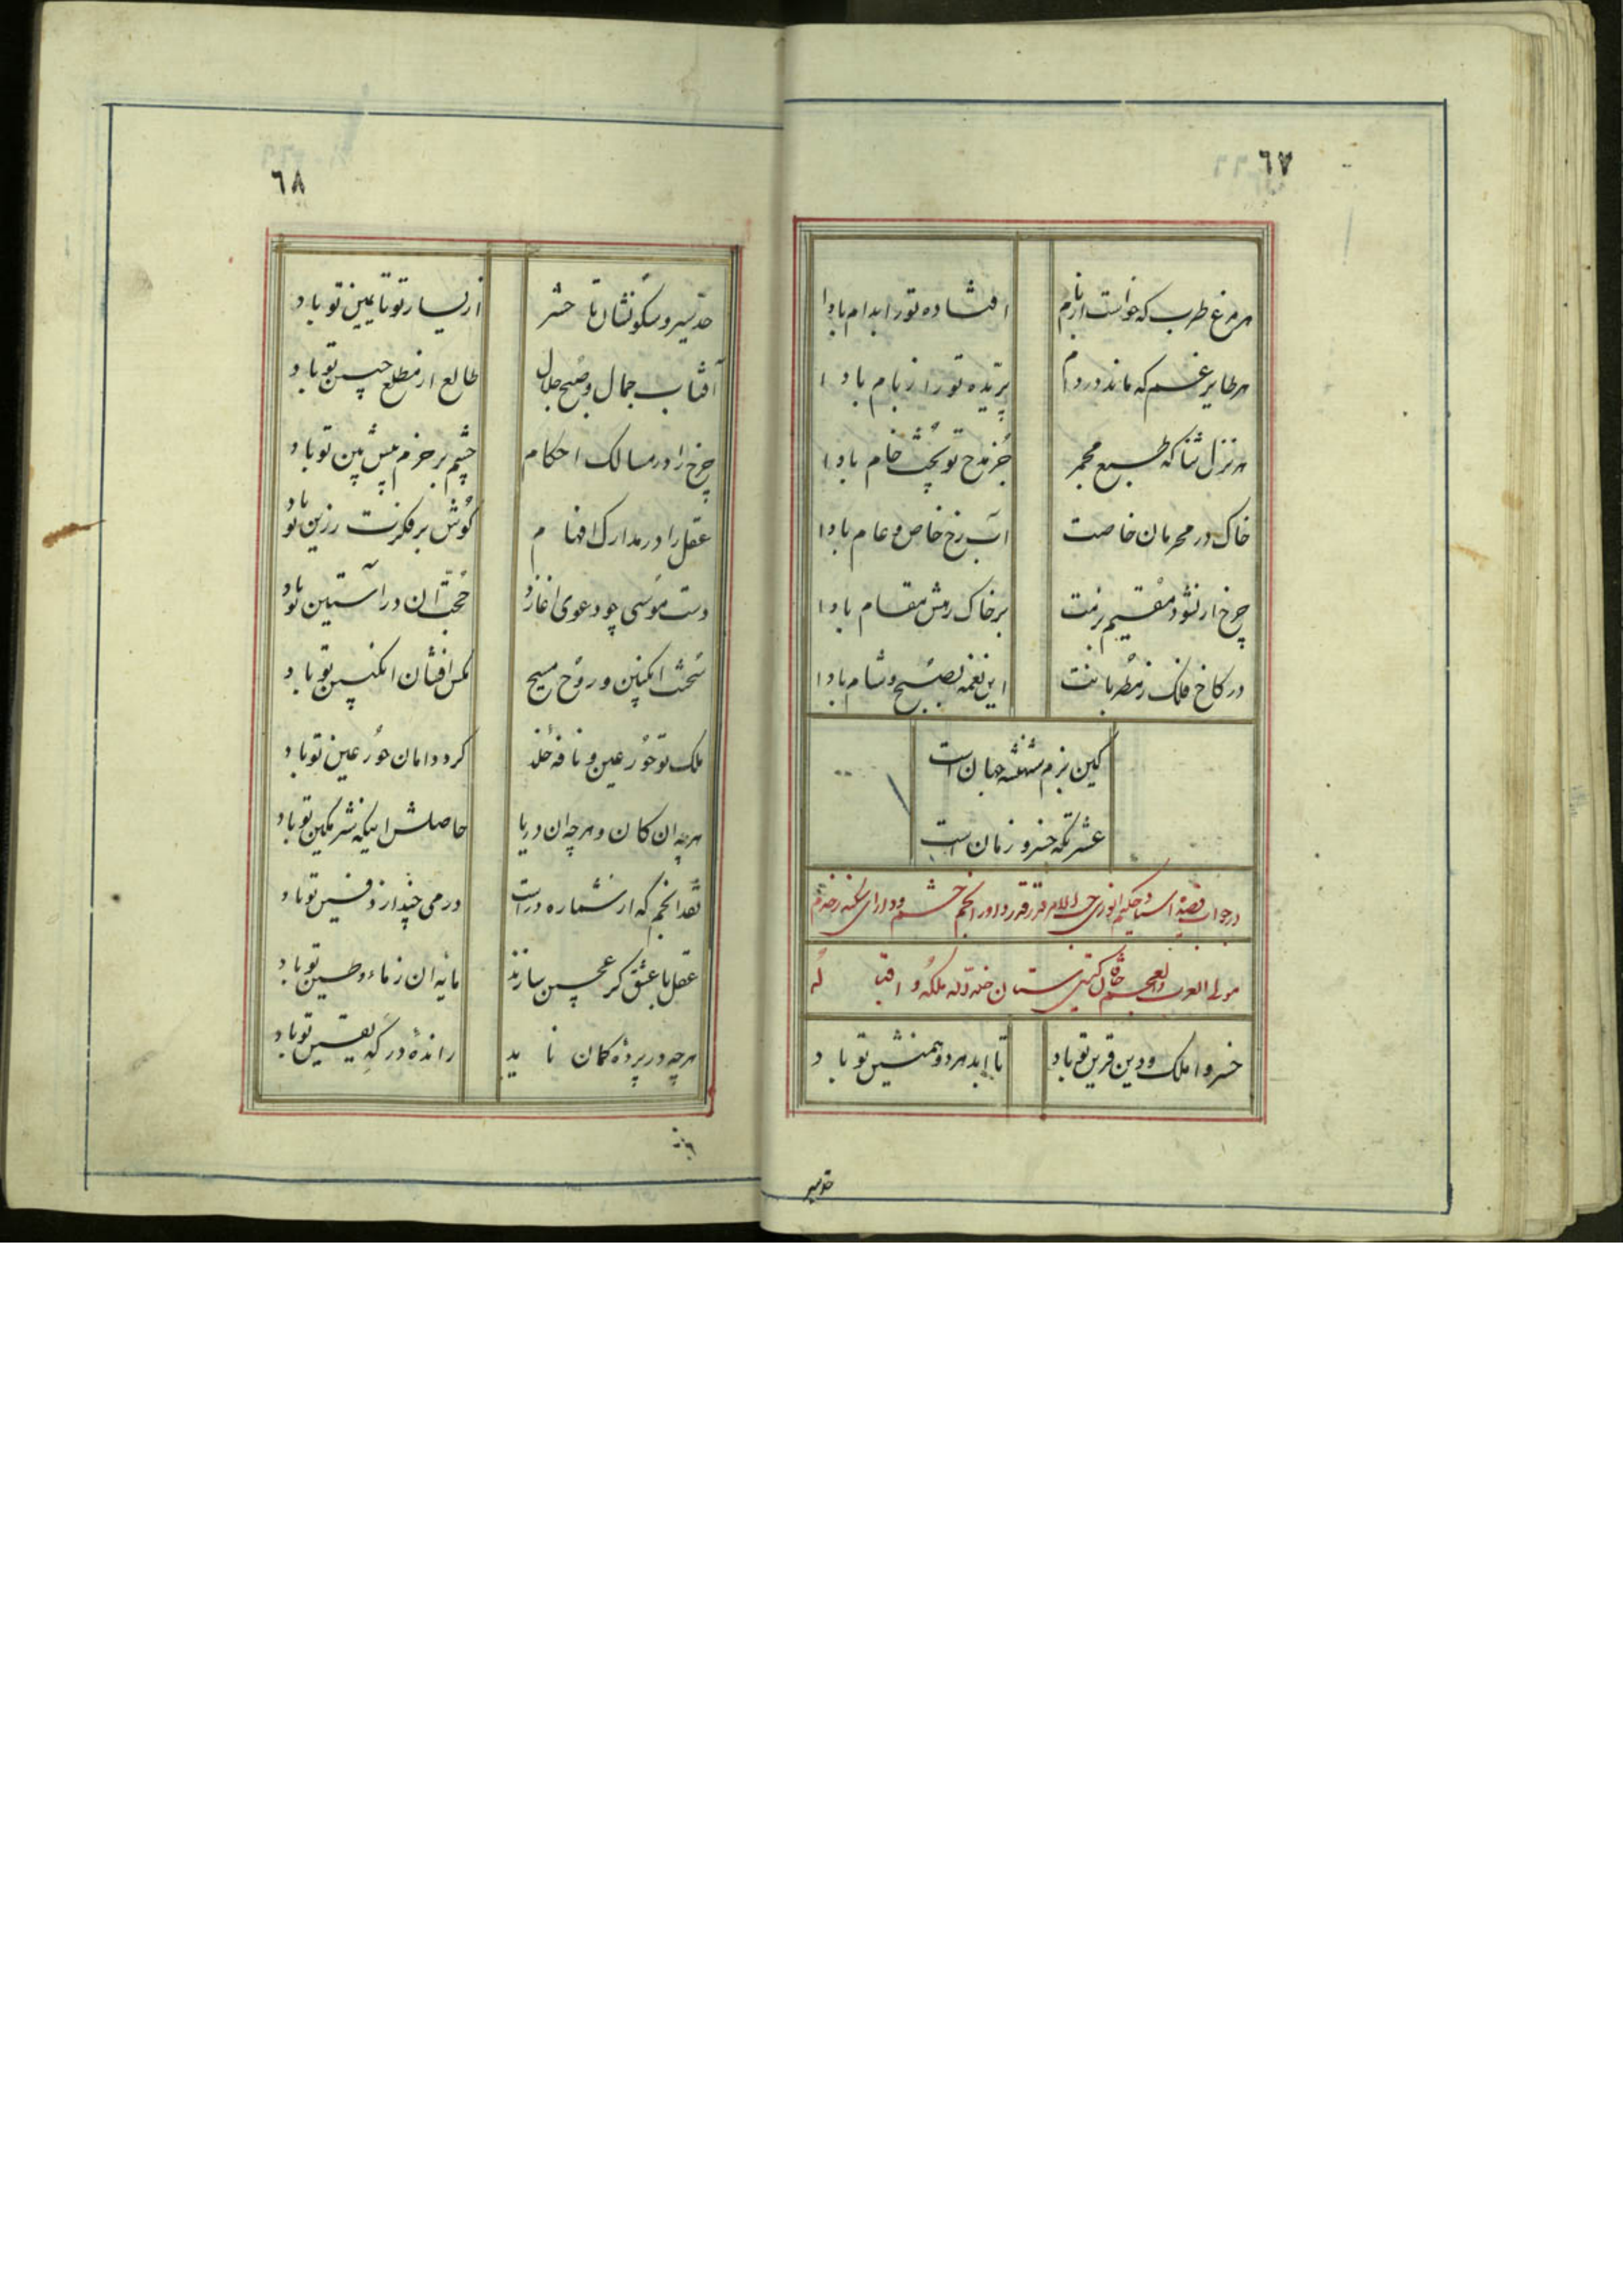 ٦٧
هر مرغ طرب که خواست از بام افتاده تو را بدام بادا
هر طایر غم که ماند در دام پریده تو را ز بام بادا
هر نزل ثنا که طبع مجمر جز مدح تو پخت خام بادا
خاک در محرمان خاصت آب رخ خاص و عام بادا
چرخ ار نشود مقیم بزمت بر خاک رهش مقام بادا
در کاخ فلک ز مطربانت این نغمه بصبح و شام بادا
کین بزم شهنشه جهان است
عشرتگه خسرو زمان است
در جواب قصیدهٔ استاد حکیم انوری داور انجم حشم و دارای
مولی العرب والعجم خاقان گیتی ستان خلد الله ملکه و اقباله
خسروا ملک و دین قرین تو باد تا ابد هر دو همنشین تو باد
حد سیر
٦٨
حد سیر و سکونشان تا حشر از یسار تو تا یمین تو باد
آفتاب جمال و صبح جلال طالع از مطلع جبین تو باد
چرخ را در مسالک احکام چشم بر حزم پیش بین تو باد
عقل را در مدارک افهام گوش بر فکرت رزین تو باد
دست موسی چو دعوی آغازد حجت آن در آستین تو باد
سخت انگبین و روح مسیح مگس افشان انگبین تو باد
ملک تو حور عین و نافهٔ خلد گرد دامان حور عین تو باد
هر چه آن کان و هر چه آن دریا حاصلش اینکه شرمگین تو باد
نقد انجم که از شماره در است درمی چند از دفین تو باد
عقل با عشق گر عجین سازند مایهٔ آن ز ماء و طین تو باد
هر چه در پردهٔ گمان ناید راندهٔ درگه یقین تو باد